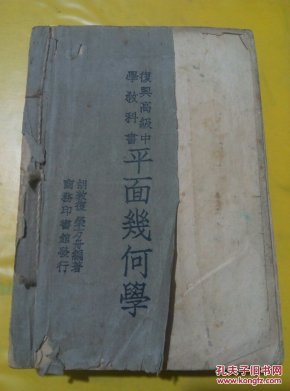 復興高級中
學教科書
平面幾何學
胡敦復 榮方舟編著
商務印書館發行
孔夫子旧书网